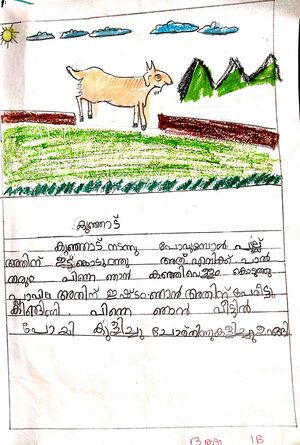 കുഞ്ഞാട്
കുഞ്ഞാട് നടന്നു പോവുമ്പോൾ പുല്ല്
അതിന് ഇട്ടുകൊടുത്തു അത് എനിക്ക് പാൽ
തരും പിന്നെ ഞാൻ കഞ്ഞിവെള്ളം കൊടുത്തു
പ്ലാവില അതിന് ഇഷ്ടം ഞാൻ അതിന് പേരിട്ടു
കിങ്ങിണി. പിന്നെ ഞാൻ വീട്ടിൽ
പോയി കുളിച്ചു ചോറ് തിന്നു കളിച്ചു ഉറങ്ങി
1B